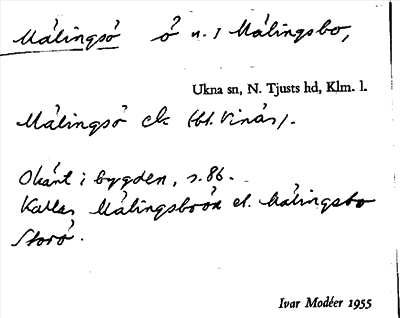 Målingsö ö n. i Målingsbo,
Ukna sn, N. Tjusts hd, Klm. l.
Målingsö ek (bl. Vinäs).
Okänt i bygden, s. 86.
Kallas Målingsboön el. Målingsbo
Storö.
Ivar Modéer 1955